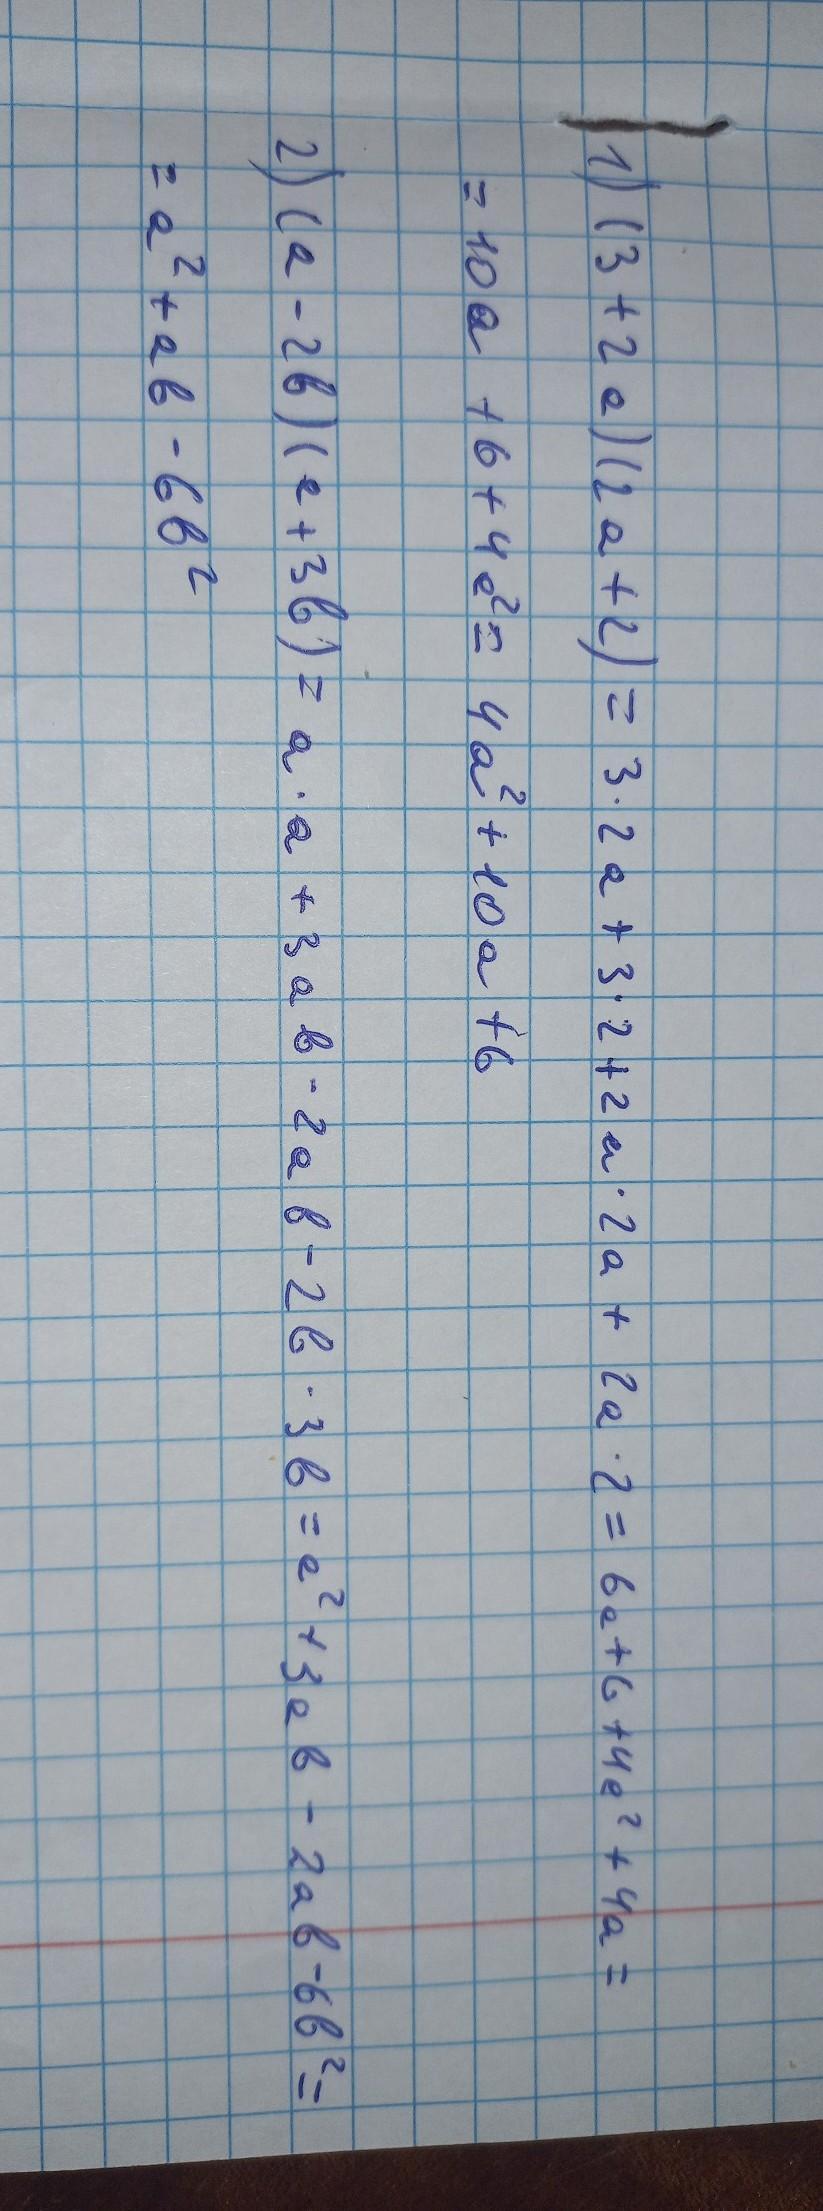 1) (3+2a)(2a+2) = 3·2a+3·2+2a·2a+2a·2=6a+6+4a²+4a=
=10a+6+4a²=4a²+10a+6
2) (a-2b)(a+3b)=a·a+3ab-2ab-2b·3b=a²+3ab-2ab-6b²=
=a²+ab-6b²